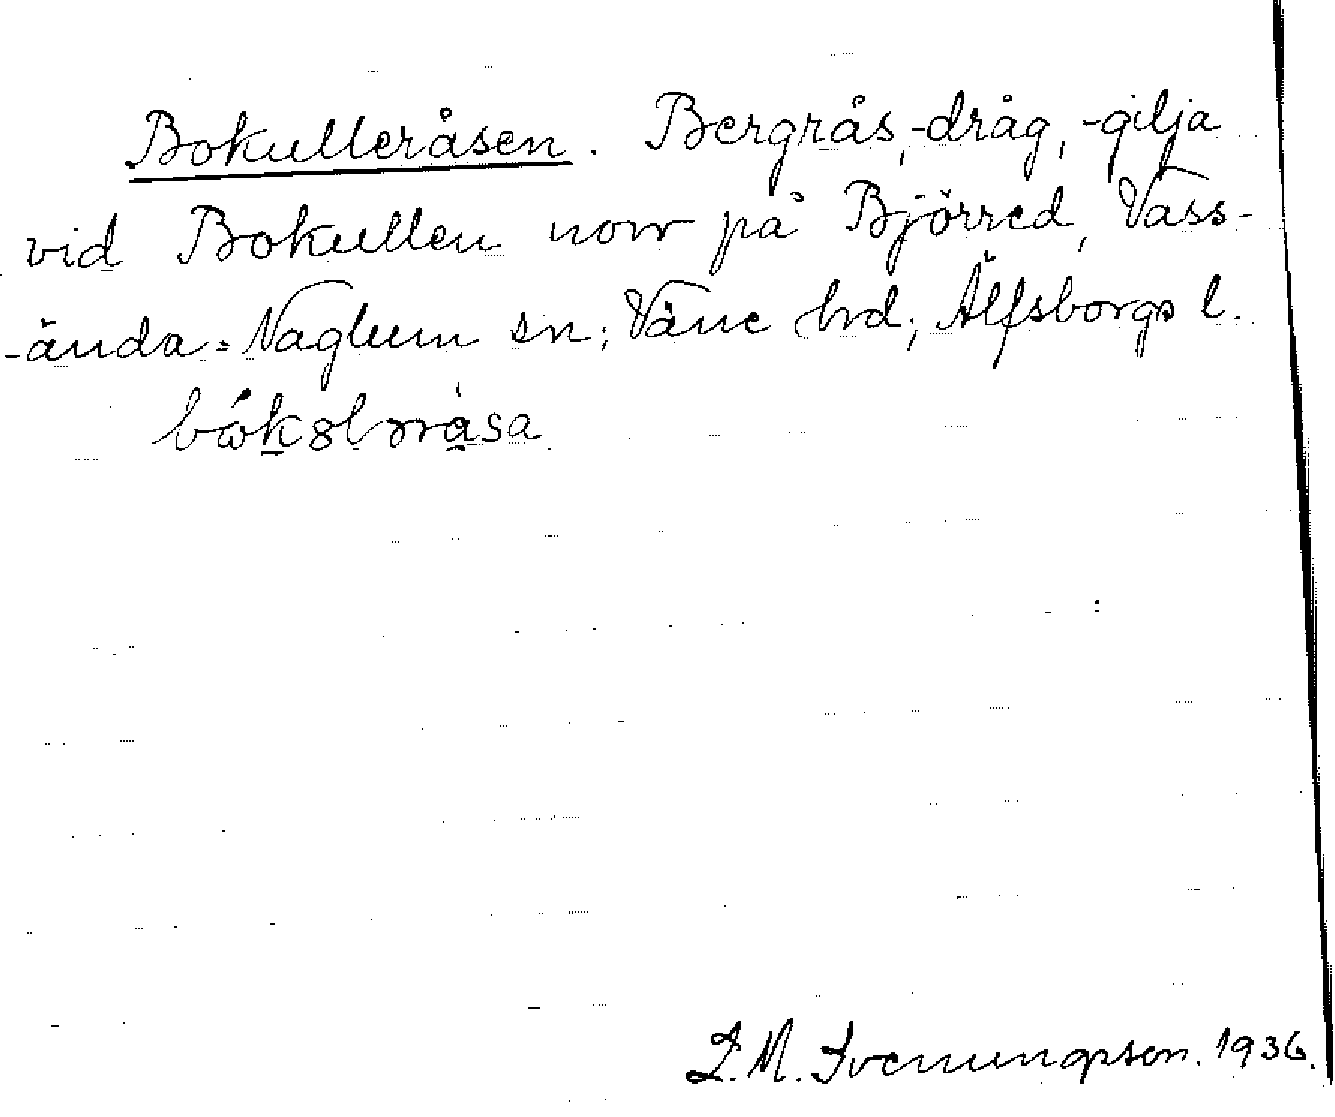 Bokulleråsen. Bergrås, -dråg, -gilja
vid Bokullen norr på Björred, Vass-
-ända-Naglum sn; Väne hrd; Älfsborgs l.
L. M. Svenungsson. 1936.